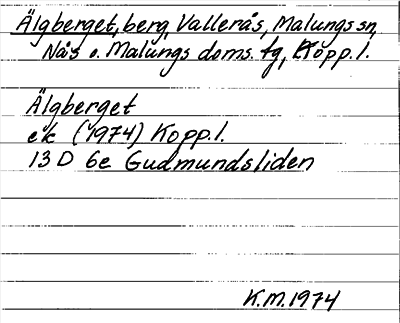 Älgberget, berg, Vallerås, Malungs sn,
Nås o. Malungs doms. tg, Kopp. l.
Älgberget
ek (1974) Kopp. l.
13 D 6e Gudmundsliden
K.M. 1974